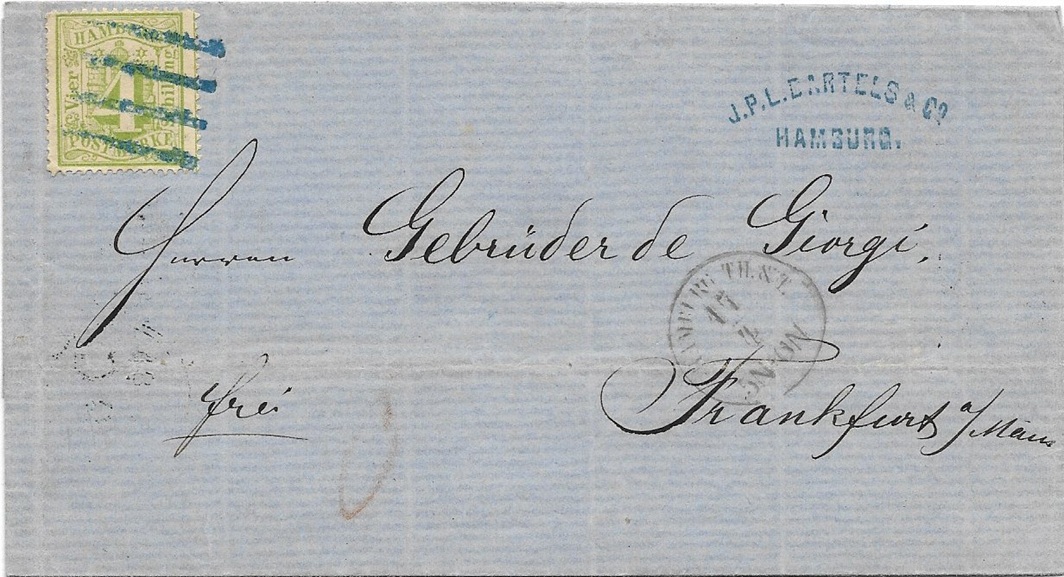 HAMBURG
Vier
4
Schilling
POSTMARKE
J.P.L. BARTELS & Co
HAMBURG.
Herren Gebrüder de Giorgi.
HAMBURG TH. & T.
17
4
frei
Frankfurt a/Main